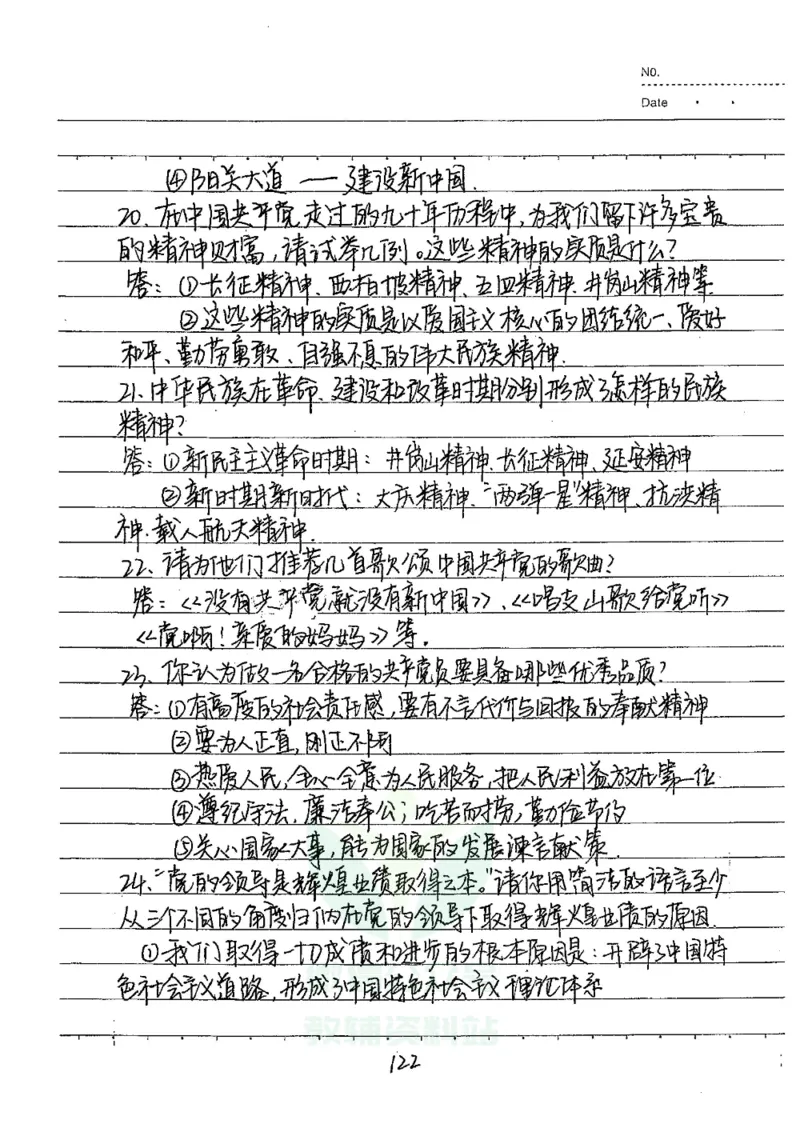 No.
Date
④阳关大道 —— 建设新中国.
20、在中国共产党走过的九十年历程中,为我们留下许多宝贵
的精神财富,请试举几例。这些精神的实质是什么?
答:①长征精神、西柏坡精神、五四精神、井岗山精神等
②这些精神的实质是以爱国主义核心的团结统一、爱好
和平、勤劳勇敢、自强不息的伟大民族精神.
21、中华民族在革命、建设和改革时期分别形成了怎样的民族
精神?
答:①新民主主义革命时期:井岗山精神、长征精神、延安精神
②新时期新时代:大庆精神、“两弹一星”精神、抗洪精
神、载人航天精神.
22、请为他们推荐几首歌颂中国共产党的歌曲?
答:《没有共产党就没有新中国》、《唱支山歌给党听》
《党啊!亲爱的妈妈》等.
23、你认为做一名合格的共产党员要具备哪些优秀品质?
答:①有高度的社会责任感,要有不言代价与回报的奉献精神
②要为人正直,刚正不阿
③热爱人民,全心全意为人民服务,把人民利益放在第一位
④遵纪守法,廉洁奉公;吃苦而耐劳,勤俭节约
⑤关心国家大事,能为国家的发展谏言献策.
24、“党的领导是辉煌业绩取得之本。”请你用简洁的语言至少
从三个不同的角度归纳在党的领导下取得辉煌业绩的原因.
①我们取得一切成绩和进步的根本原因是:开辟了中国特
色社会主义道路,形成了中国特色社会主义理论体系
教辅资料站
122